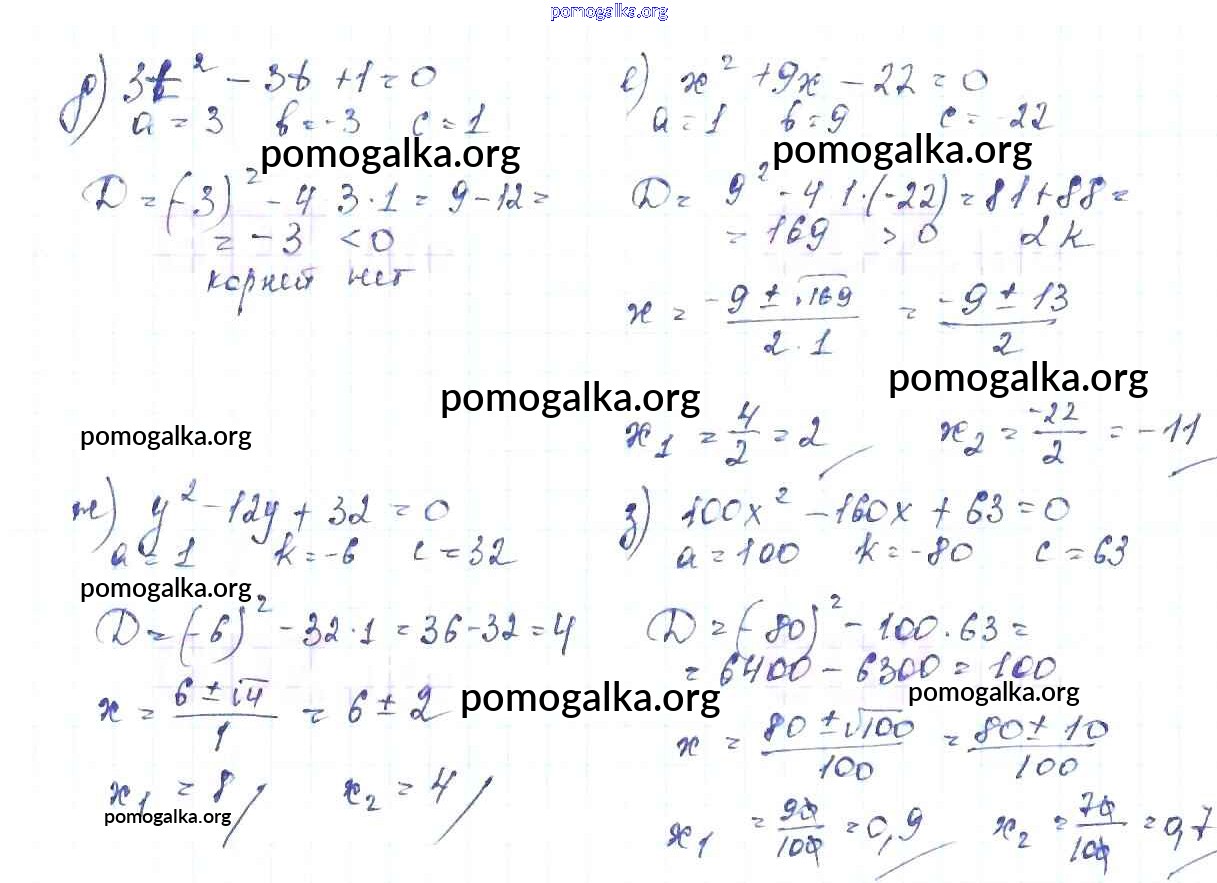 pomogalka.org
д) 3t² − 3t + 1 = 0
a = 3 b = -3 c = 1
pomogalka.org
D = (-3)² − 4 3·1 = 9 − 12 =
= −3 < 0
корней нет
е) x² + 9x − 22 = 0
a = 1 b = 9 c = -22
pomogalka.org
D = 9² − 4 1·(-22) = 81 + 88 =
= 169 > 0 2 k
x = (-9 ± √169)/(2·1) = (-9 ± 13)/2
pomogalka.org
pomogalka.org
x₁ = 4/2 = 2 x₂ = -22/2 = -11
pomogalka.org
ж) y² − 12y + 32 = 0
a = 1 k = -6 c = 32
pomogalka.org
D = (-6)² − 32·1 = 36 − 32 = 4
x = (6 ± √4)/1 = 6 ± 2
pomogalka.org
x₁ = 8 x₂ = 4
pomogalka.org
з) 100x² − 160x + 63 = 0
a = 100 k = -80 c = 63
D = (-80)² − 100·63 =
= 6400 − 6300 = 100
pomogalka.org
x = (80 ± √100)/100 = (80 ± 10)/100
x₁ = 90/100 = 0,9 x₂ = 70/100 = 0,7